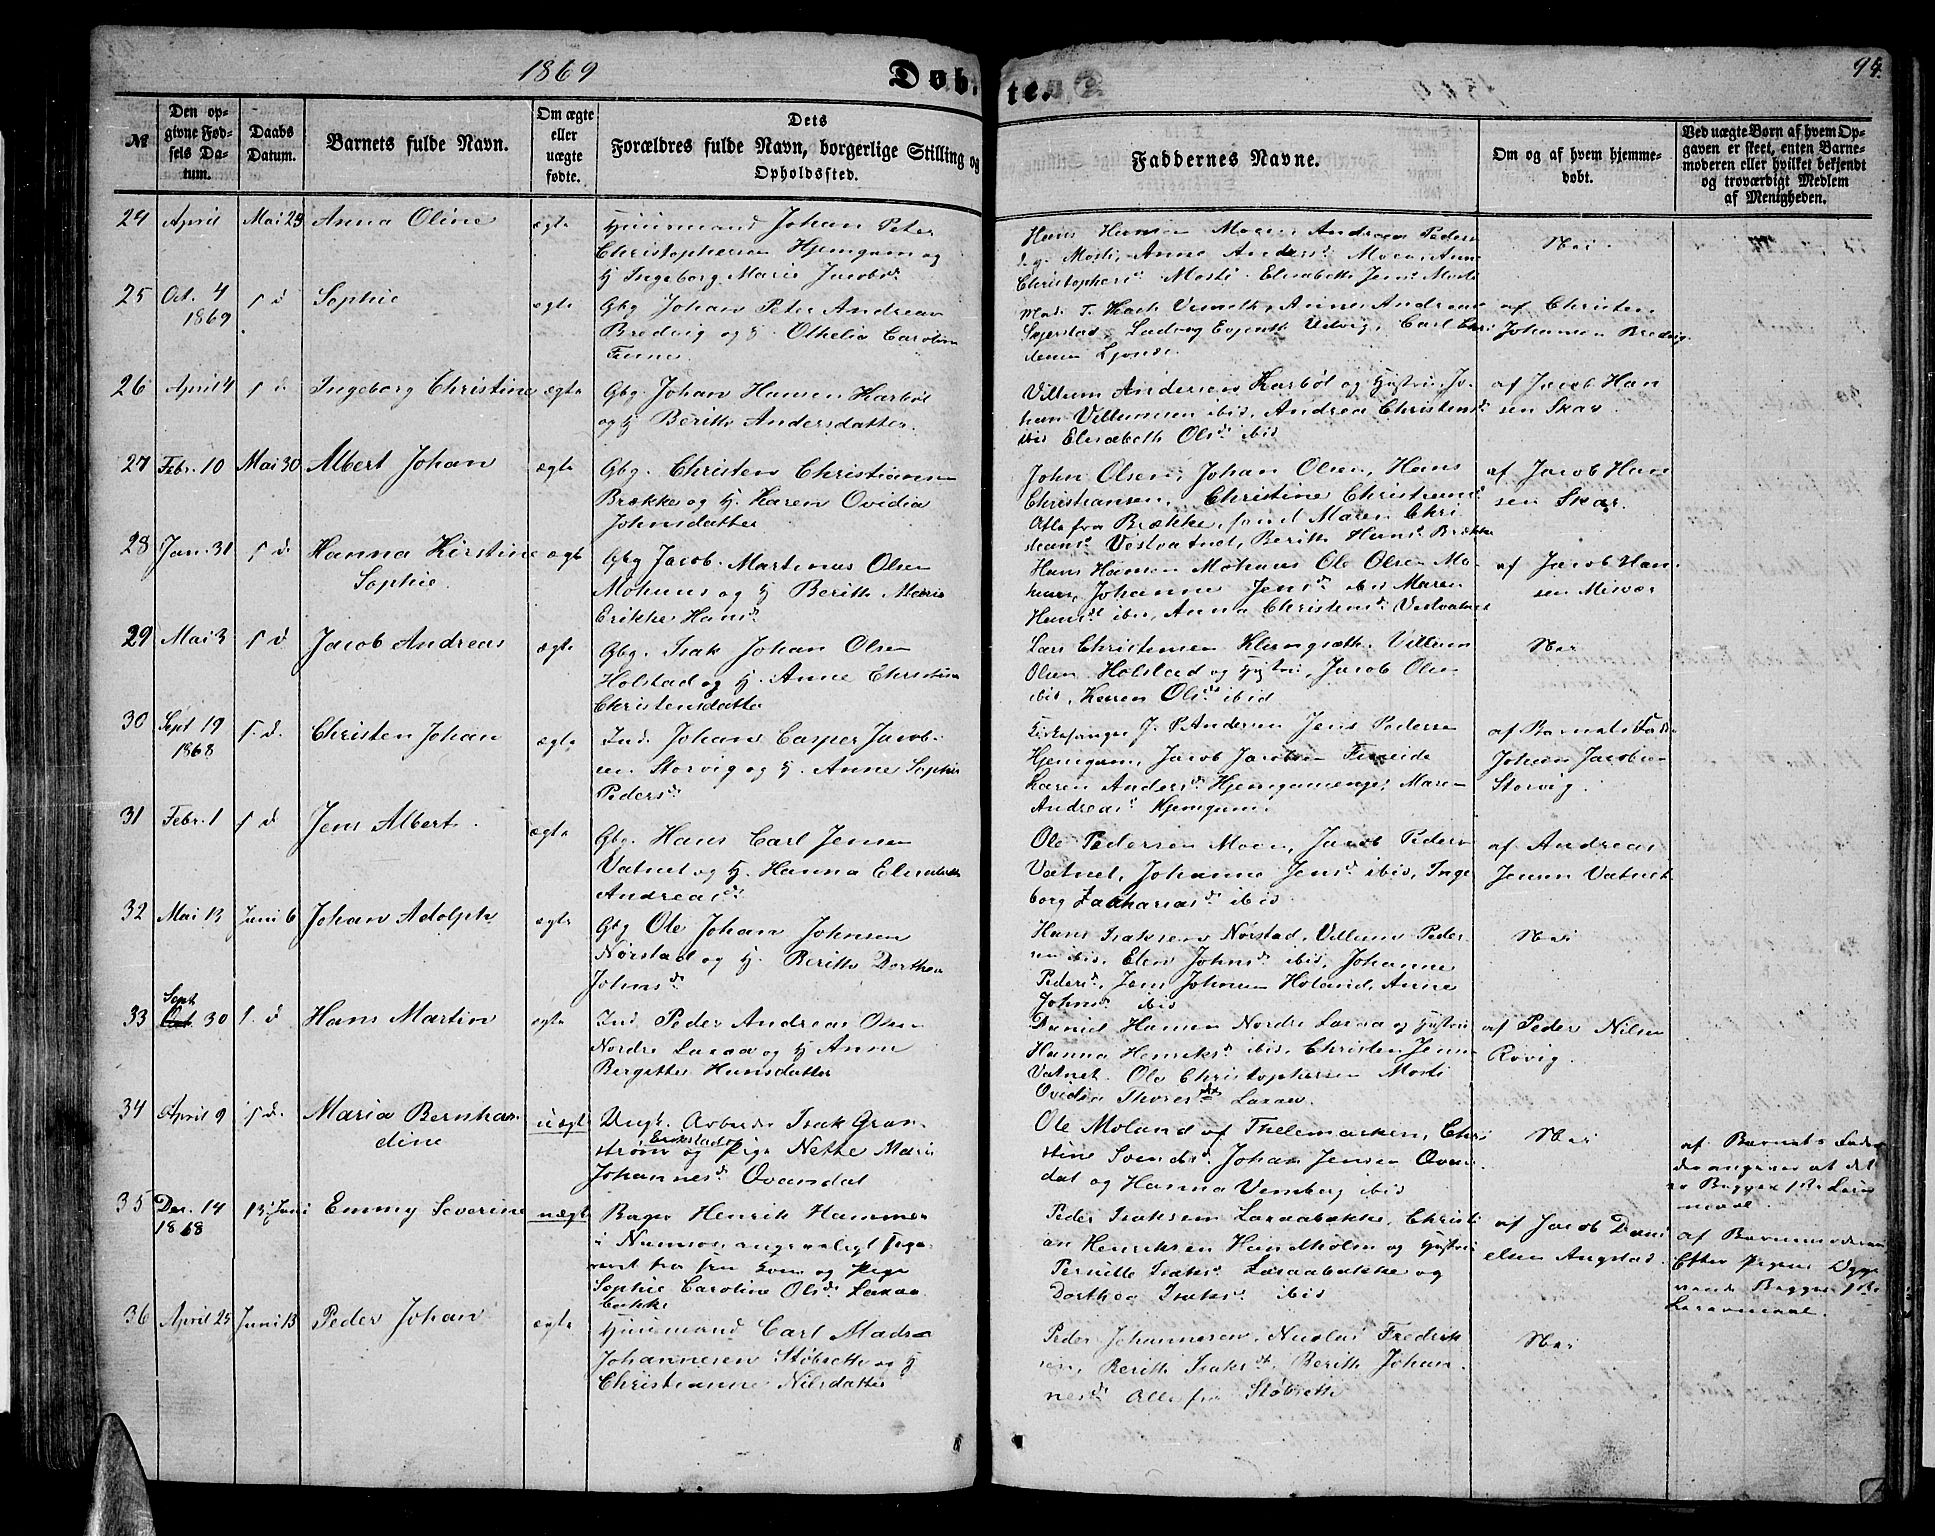 1869
Døbte.
94.
№
Den opgivne Fødsels Datum.
Daabs Datum.
Barnets fulde Navn.
Om ægte eller uægte fødte.
Dets
Forældres fulde Navn, borgerlige Stilling og
Opholdssted.
Faddernes Navne.
Om og af hvem hjemmedøbt.
Ved uægte Børn af hvem Opgaven er skeet, enten Barnemoderen eller hvilket bekjendt og troværdigt Medlem af Menigheden.
24 April Mai 23 Anna Oline ægte Huusmand Johan Peter
Christophersen Hjemgam og
H Ingeborg Marie Jacobsd.
Hans Hansen Moen, Andreas Peders
Mosti, Anne Andersd. Moen, Ann
Christophersd. Mosti. Elisabeth Jensd. Mosti
Nei.
25 Oct. 4 1869 s d Sophie ægte Gbg Johan Peter Andreas
Bredvig og H. Othelia Caroline
Anne Andreas
Ludvig Carl
af Christen
Johansen Bredvig
26 April 4 s d. Ingeborg Christine ægte Gbg. Johan Hansen Karbøl
og H Berith Andersdatter.
Villum Andersen Karbøl og Hustru, Jo-
han Villumsen ibid, Andrea Christensd.
ibid Elisabeth Olsd. ibid
af Jacob Han
sen Skar.
27 Febr. 10 Mai 30 Albert Johan ægte Gbg. Christen Christiansen
Brække og H. Karen Ovidia
Johnsdatter
John Olsen, Johan Olsen, Hans
Christiansen, Christine Christiansd.
Alle fra Brække, samt Maren Chri
stiansd. Vestvatnet, Berith Hansd. Brække
af Jacob Han
sen Skar.
28 Jan. 31 s d. Hanna Kirstine
Sophie.
ægte Gbg Jacob Martinus Olsen
Mohuus og H Berith Marie
Erikke Hansd.
Hans Hansen Mohuus Ole Olsen Mo-
huus, Johanne Jensd. ibid Maren
Hansd. ibid, Anna Christensd. Vestvatnet
af Jacob Han-
sen Misvær
29 Mai 3 s d Jacob Andreas ægte Gbg. Isak Johan Olsen
Holstad og H. Anne Christine
Christensdatter
Lars Christensen Klungsæth, Villum
Olsen Holstad og Hustru, Jacob Olsen
ibid, Karen Olsd. ibid
Nei
30 Sept 19 1868 s. d. Christen Johan ægte Ind. Johan Casper Jacob-
sen Storvig og H. Anne Sophie
Pedersd.
Kirkesanger J. P Andersen Jens Pedersen
Hjemgam, Jacob Jacobsen
Karen Andersd. Hjemgamenge, Maren
Andreasd. Hjemgam.
af Barnets Fader
Johan Jacobsen
Storvig.
31 Febr. 1 s d Jens Albert. ægte Gbg. Hans Carl Jensen
Vatnet og H. Hanna
Andreasd.
Ole Pedersen Moen, Jacob Peders
Vatnet, Johanne Jensd. ibid, Inge
borg Zachariasd. ibid
af Andreas
Jensen Vatnet
32 Mai 13 Juni 6 Johan Adolph ægte Gbg Ole Johan Johnsen
Nørstad og H. Berith Dorthea
Johnsd.
Hans Isaksen Nørstad, Villum Peder-
sen ibid, Elen Johnsd. ibid, Johanne
Pedersd., Jens Johnsen Høland, Anne
Johnsd. ibid
Nei
33 Sept 30 s. d Hans Martin ægte Ind. Peder Andreas Olsen
Nordre Laxaa og H Anne
Bergitte Hansdatter
Daniel Hansen Nordre Laxaa og Hustru
Hanna Henriksd. ibid, Christen Jens
Vatnet. Ole Christophersen Mosti
Laxaa.
af Peder Nilsen
Røvig.
34 April 9 s d. Maria Bernhar
dine
uægte Ungk. Arbeider Isak Gran-
strøm og Pige Nette Marie
Johannesd. Qvandal
Ole Moland af Thelemarken, Chri
stine Svendsd. Johan Jensen Qvan
dal og Hanna ibid
Nei
af Barnets Fader
der angiver at det
er Begges 1ste
35 Dec. 14 1868 13de Juni Emmy Severine uægte Bager Henrik Hammer
i Namsos,
og Pige
Sophie Caroline Olsd. Laxaa
bakke
Peder Isaksen Laxaabakke, Christi
an Henriksen Handholm og Hustru
Pernille Isaksd. Laxaabakke og
Dorthea Isaksd. ibid
af Jacob Dani
elsen Angstad.
af Barnemoderen
Efter Pigens Opgi
vende Begges 1ste
36 April 25 Juni 13 Peder Johan ægte Huusmand Carl Mads
Johannesen Støbseth og H
Christianne Nilsdatter
Peder Johannesen, Nicolai Fredrik
sen, Berith Isaksd., Berith Johan
nesd Alle fra Støbseth
Nei